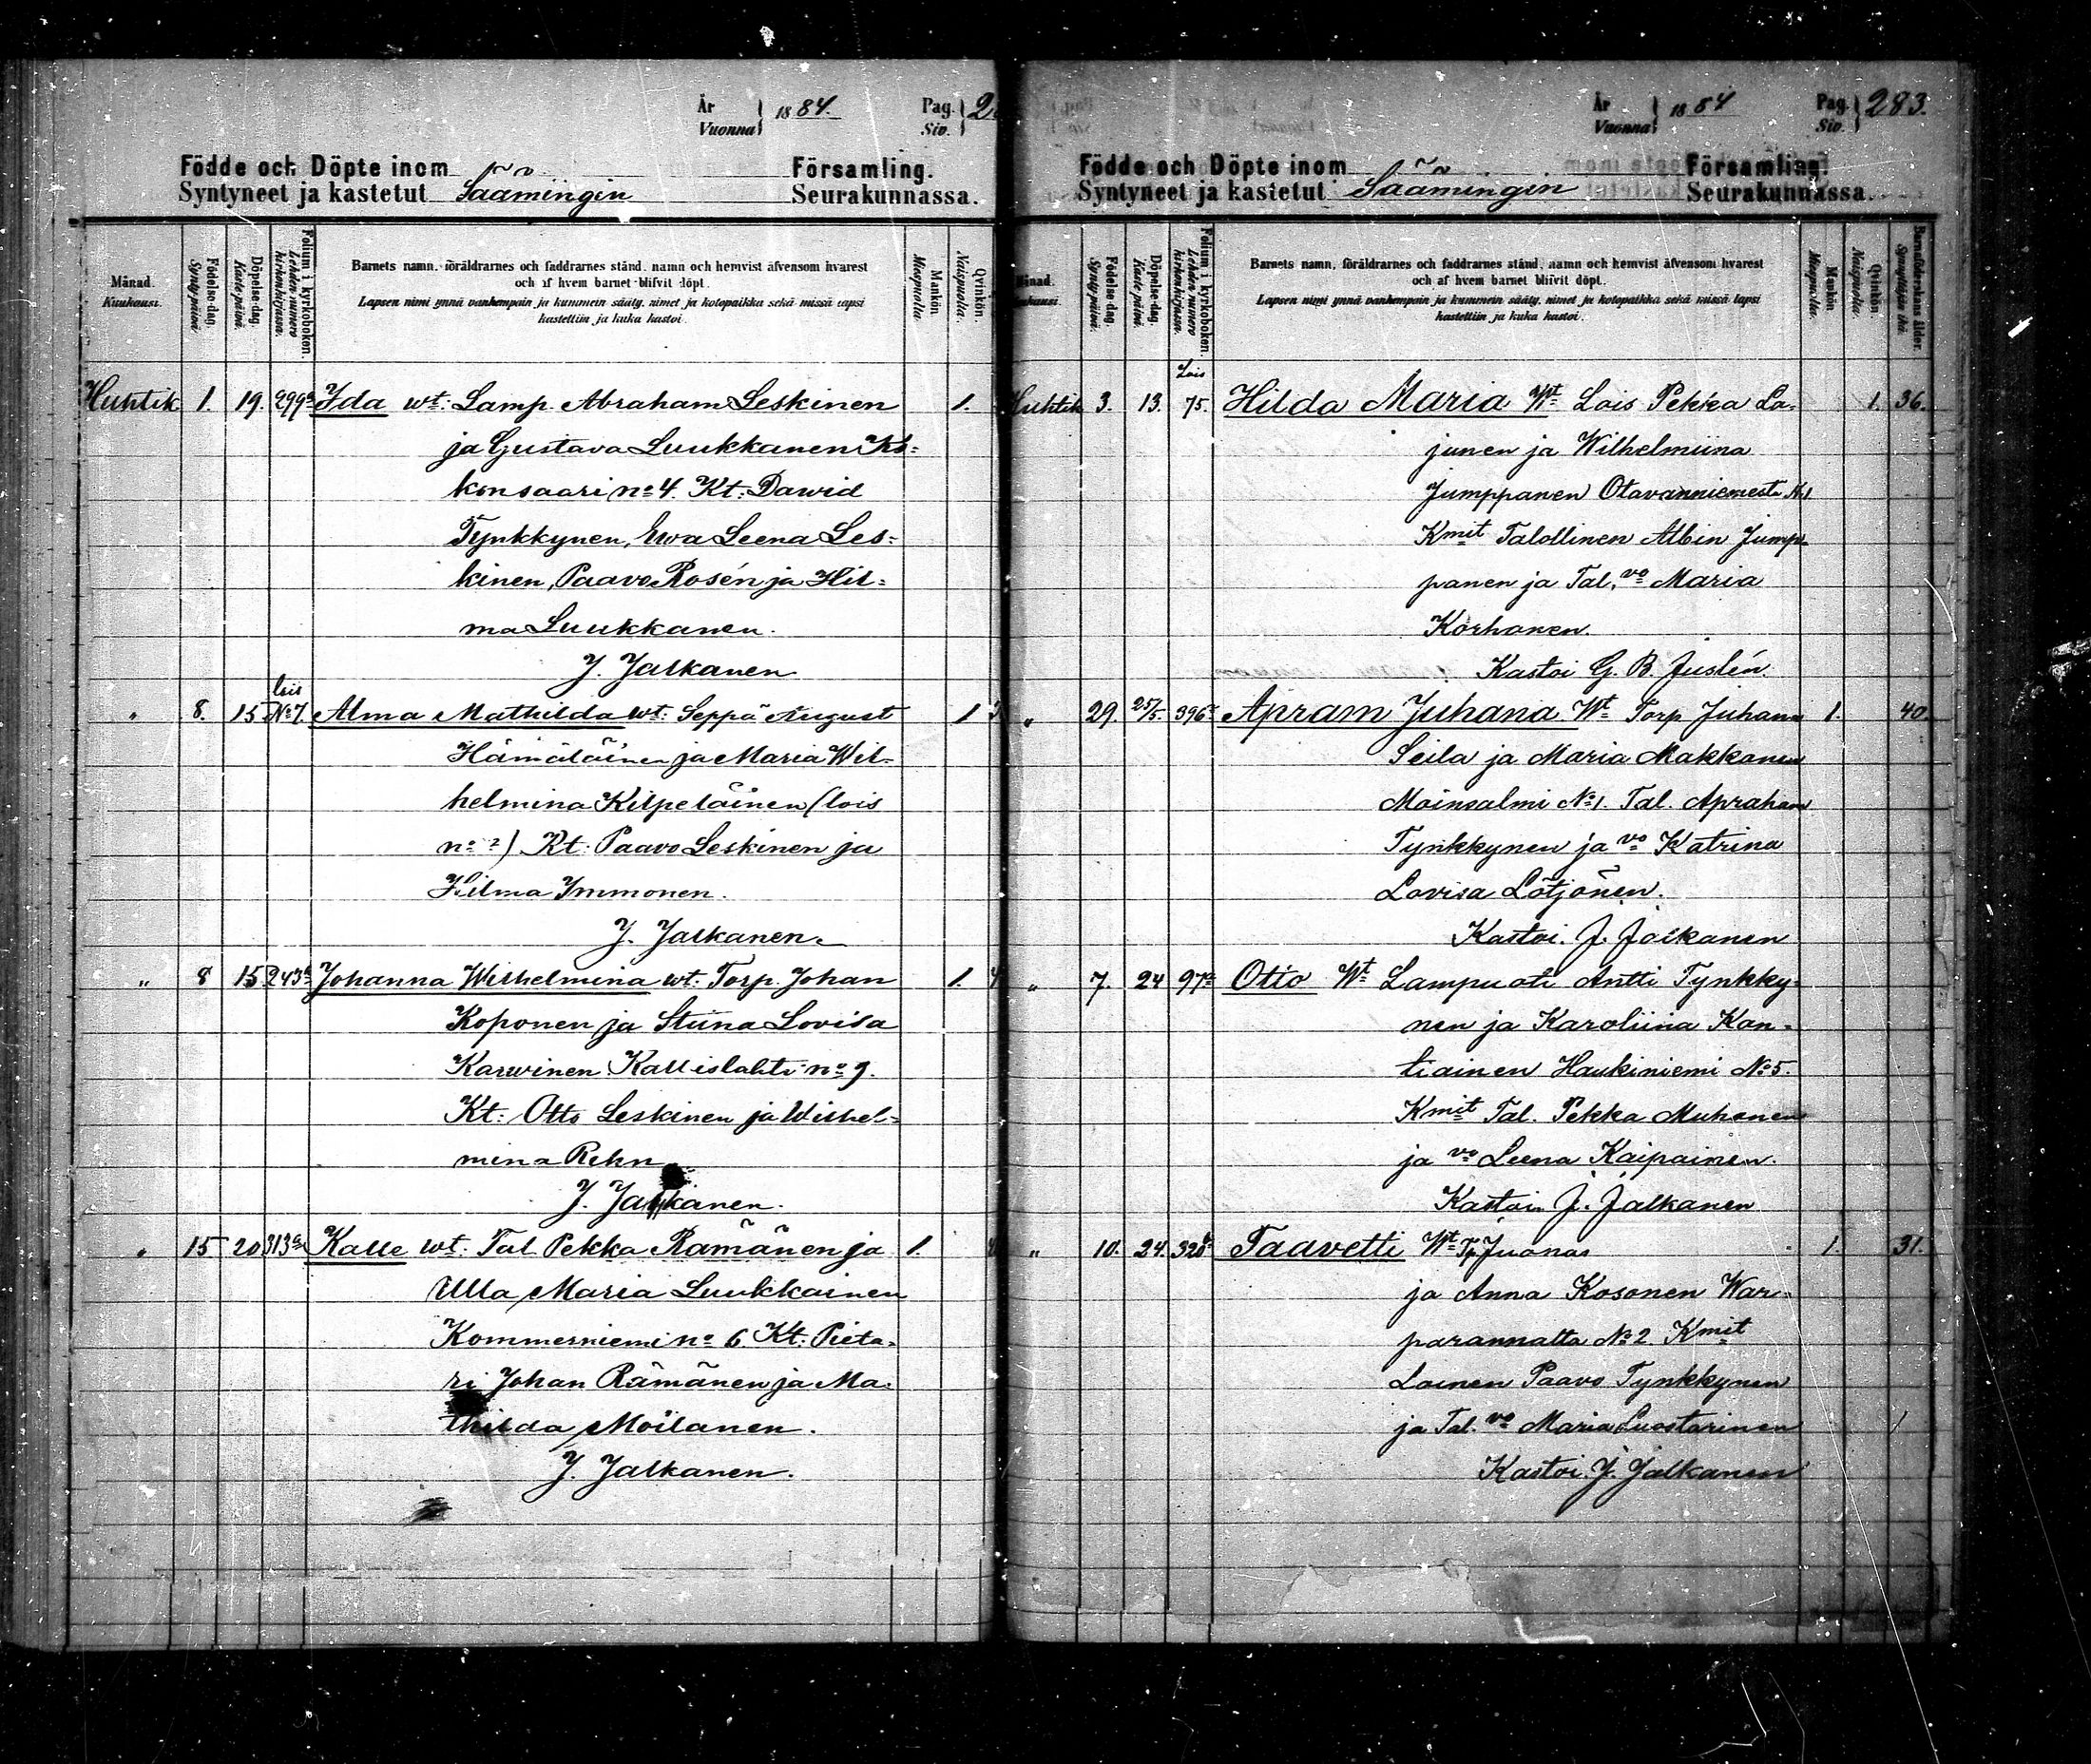 År
Vuonna 1884.
Pag.
Siv.
Födde och Döpte inom Församling.
Syntyneet ja kastetut Säämingin Seurakunnassa.
Månad.
Kuukausi.
Födelse-dag.
Syntypäivä.
Döpelse-dag.
Kastepäivä.
Folium i kyrkoboken.
Lehden numero kirkonkirjassa.
Barnets namn, föräldrarnes och faddrarnes stånd, namn och hemvist äfvensom hvarest
och af hvem barnet blifvit döpt.
Lapsen nimi ynnä vanhempain ja kummein sääty, nimet ja kotopaikka sekä missä lapsi
kastettiin ja kuka kastoi.
Mankön.
Miespuolia.
Qvinkön.
Naispuolia.
Huhtik 1. 19. 299 Ida wt: Lamp. Abraham Leskinen 1.
ja Gustava Luukkanen
konsaari no 4. Kt: Dawid
Tynkkynen, Ewa Leena Les=
kinen, Paavo Rosén ja Hil=
ma Luukkanen.
J. Jalkanen
lois
" 8. 15 No 7. Alma Mathilda wt: Seppä August 1
Hämäläinen ja Maria Wil-
helmina Kilpeläinen (lois
no ?) Kt: Paavo Leskinen ja
Hilma Immonen.
J. Jalkanen.
" 8 15 243 Johanna Wilhelmina wt: Torp. Johan 1.
Koponen ja Stiina Lovisa
Karwinen Kallislahti no 9.
Kt: Otto Leskinen ja Wilhel=
mina Rehn
J. Jalkanen.
" 15 20 313 Kalle wt: Tal Pekka Rämänen ja 1.
Ulla Maria Luukkainen
Kommerniemi no 6. Kt: Pieta-
ri Johan Rämänen ja Ma-
thilda Moilanen.
J. Jalkanen.
År
Vuonna 1884
Pag.
Siv. 283.
Födde och Döpte inom Församling.
Syntyneet ja kastetut Säämingin Seurakunnassa.
Månad.
Kuukausi.
Födelse-dag.
Syntypäivä.
Döpelse-dag.
Kastepäivä.
Folium i kyrkoboken.
Lehden numero kirkonkirjassa.
Barnets namn, föräldrarnes och faddrarnes stånd, namn och hemvist äfvensom hvarest
och af hvem barnet blifvit döpt.
Lapsen nimi ynnä vanhempain ja kummein sääty, nimet ja kotopaikka sekä missä lapsi
kastettiin ja kuka kastoi.
Mankön
Miespuolia.
Qvinkön.
Naispuolia.
Barnföderskans ålder.
Synnyttäjän ikä.
Lois
Huhtik 3. 13. 75. Hilda Maria Wt Lois Pekka La- 1. 36.
junen ja Wilhelmiina
Jumppanen Otavanniemestä N:1
Kmit Talollinen Albin Jump-
panen ja Tal. vo Maria
Korhonen.
Kastoi G. B. Juslén.
" 29. 25/5. 396 Apram Juhana Wt Torp Juhana 1. 40.
Seila ja Maria Makkonen
Moinsalmi No 1. Tal. Apraham
Tynkkynen ja vo Katrina
Lovisa Lötjönen.
Kastoi. J. Jalkanen
" 7. 24 97 Otto Wt Lampuoti Antti Tynkky-
nen ja Karoliina Kon-
tiainen Haukiniemi No 5.
Kmit Tal. Pekka Muhonen
ja vo Leena Kaipainen.
Kastoi J. Jalkanen
" 10. 24. 320 Taavetti Wt Tp. Juonas 1. 31.
ja Anna Kosonen War-
parannalta No 2. Kmit
Loinen Paavo Tynkkynen
ja Tal. vo Maria Luostarinen
Kastoi. J. Jalkanen